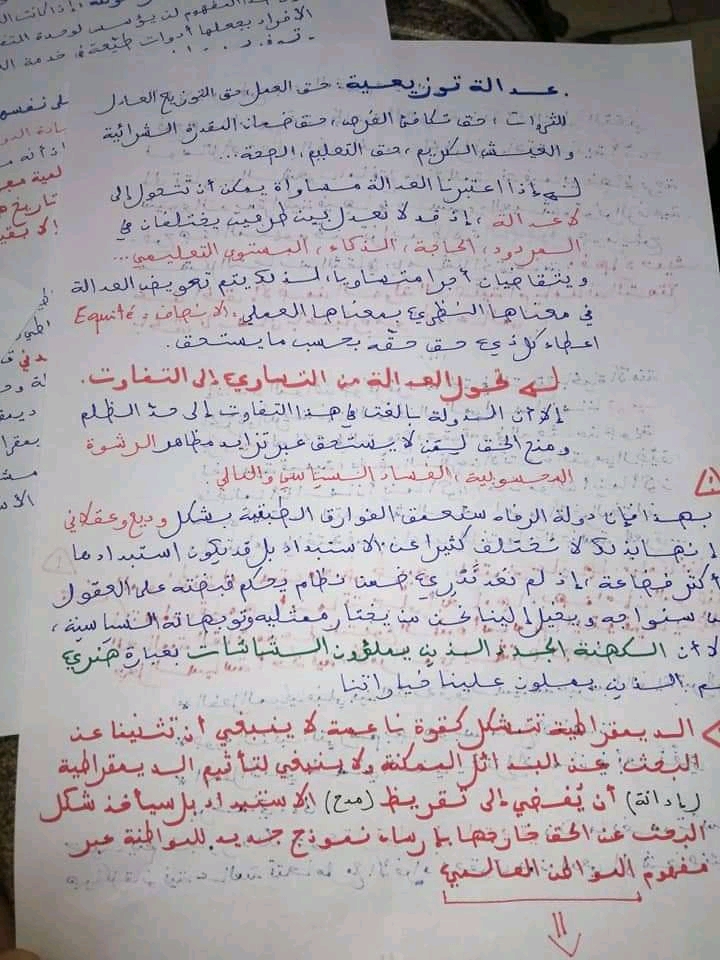 الأفراد بجعلها أدوات طيّعة في خدمة
عدالة توزيعية: حق العمل، حق التوزيع العادل
للثروات، حق تكافئ الفرص، حق ضمان المقدرة الشرائية
والعيش الكريم، حق التعليم، الصحة...
إذا اعتبرنا العدالة مساواة يمكن أن تتحول إلى
لا عدالة، إذ قد لا تعدل بين طرفين يختلفان في
المردود، الحاجة، الذكاء، المستوى التعليمي...
ويتقاضيان أجرا متساويا، لذلك يتم تعويض العدالة
في معناها النظري بمعناها العملي، الإنصاف، Equité
اعطاء كل ذي حق حقّه بحسب ما يستحق.
تحول العدالة من التساوي إلى التفاوت.
إلا أن الدولة بالغت في هذا التفاوت إلى حدّ الظلم
ومنح الحق لمن لا يستحق عبر تزايد مظاهر الرشوة
المحسوبية، الفساد السياسي والمالي.
بهذا فإن دولة الرفاه ستعمق الفوارق الطبقية بشكل وديع وعقلاني
إنها بذلك لا تختلف كثيرا عن الاستبداد بل قد يكون استبدادها
أكثر فضاعة، إذ لم نعد ندري ضمن نظام يحكم قبضته على العقول
من سنواجه ويخيل إلينا نحن من يختار ممثليه وتوجهاته السياسية،
لأن الكهنة الجدد الذين يملؤون الشاشات بعبارة هنري
الذين يملون علينا خياراتنا
الديمقراطية تتشكل كقوة ناعمة لا ينبغي أن تثنينا عن
البحث عن البدائل الممكنة ولا ينبغي لتأثيم الديمقراطية
(إدانة) أن يُفضي إلى تقريظ (مدح) الاستبداد بل سيأخذ شكل
البحث عن الحق خارجها بإرساء نموذج جديد للمواطنة عبر
مفهوم المواطن العالمي